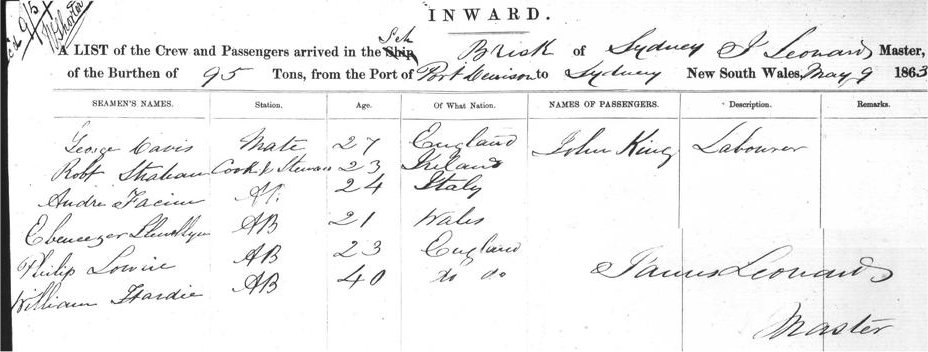 INWARD.
A LIST of the Crew and Passengers arrived in the Ship Sch Brisk of Sydney J Leonard Master,
of the Burthen of 95 Tons, from the Port of Port Denison to Sydney New South Wales, May 9 1863
SEAMEN'S NAMES. Station. Age. Of What Nation. NAMES OF PASSENGERS. Description. Remarks.
George Davis Mate 27 England John King Labourer
Robt Cook & Steward 23 Ireland
Andre 24 Italy
Ebeneezer Llewellyn AB 21 Wales
Philip AB 23 England
William Hardie AB 40 do do James Leonard
Master